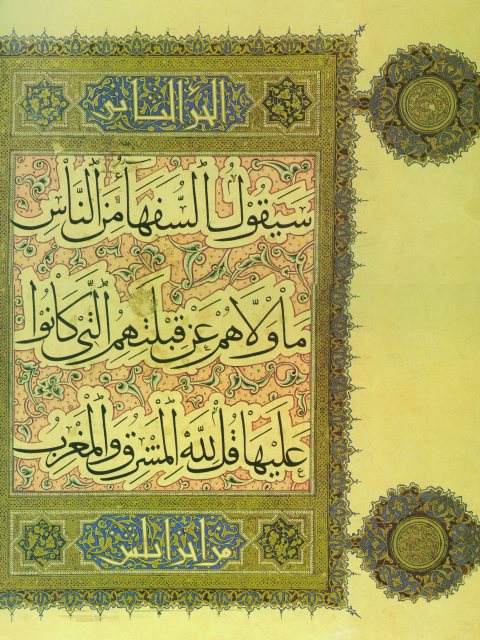 الجزء الثاني
سَيَقُولُ السُّفَهَاءُ مِنَ النَّاسِ
مَا وَلَّاهُمْ عَنْ قِبْلَتِهِمُ الَّتِي كَانُوا
عَلَيْهَا قُلْ لِلَّهِ الْمَشْرِقُ وَالْمَغْرِبُ
من